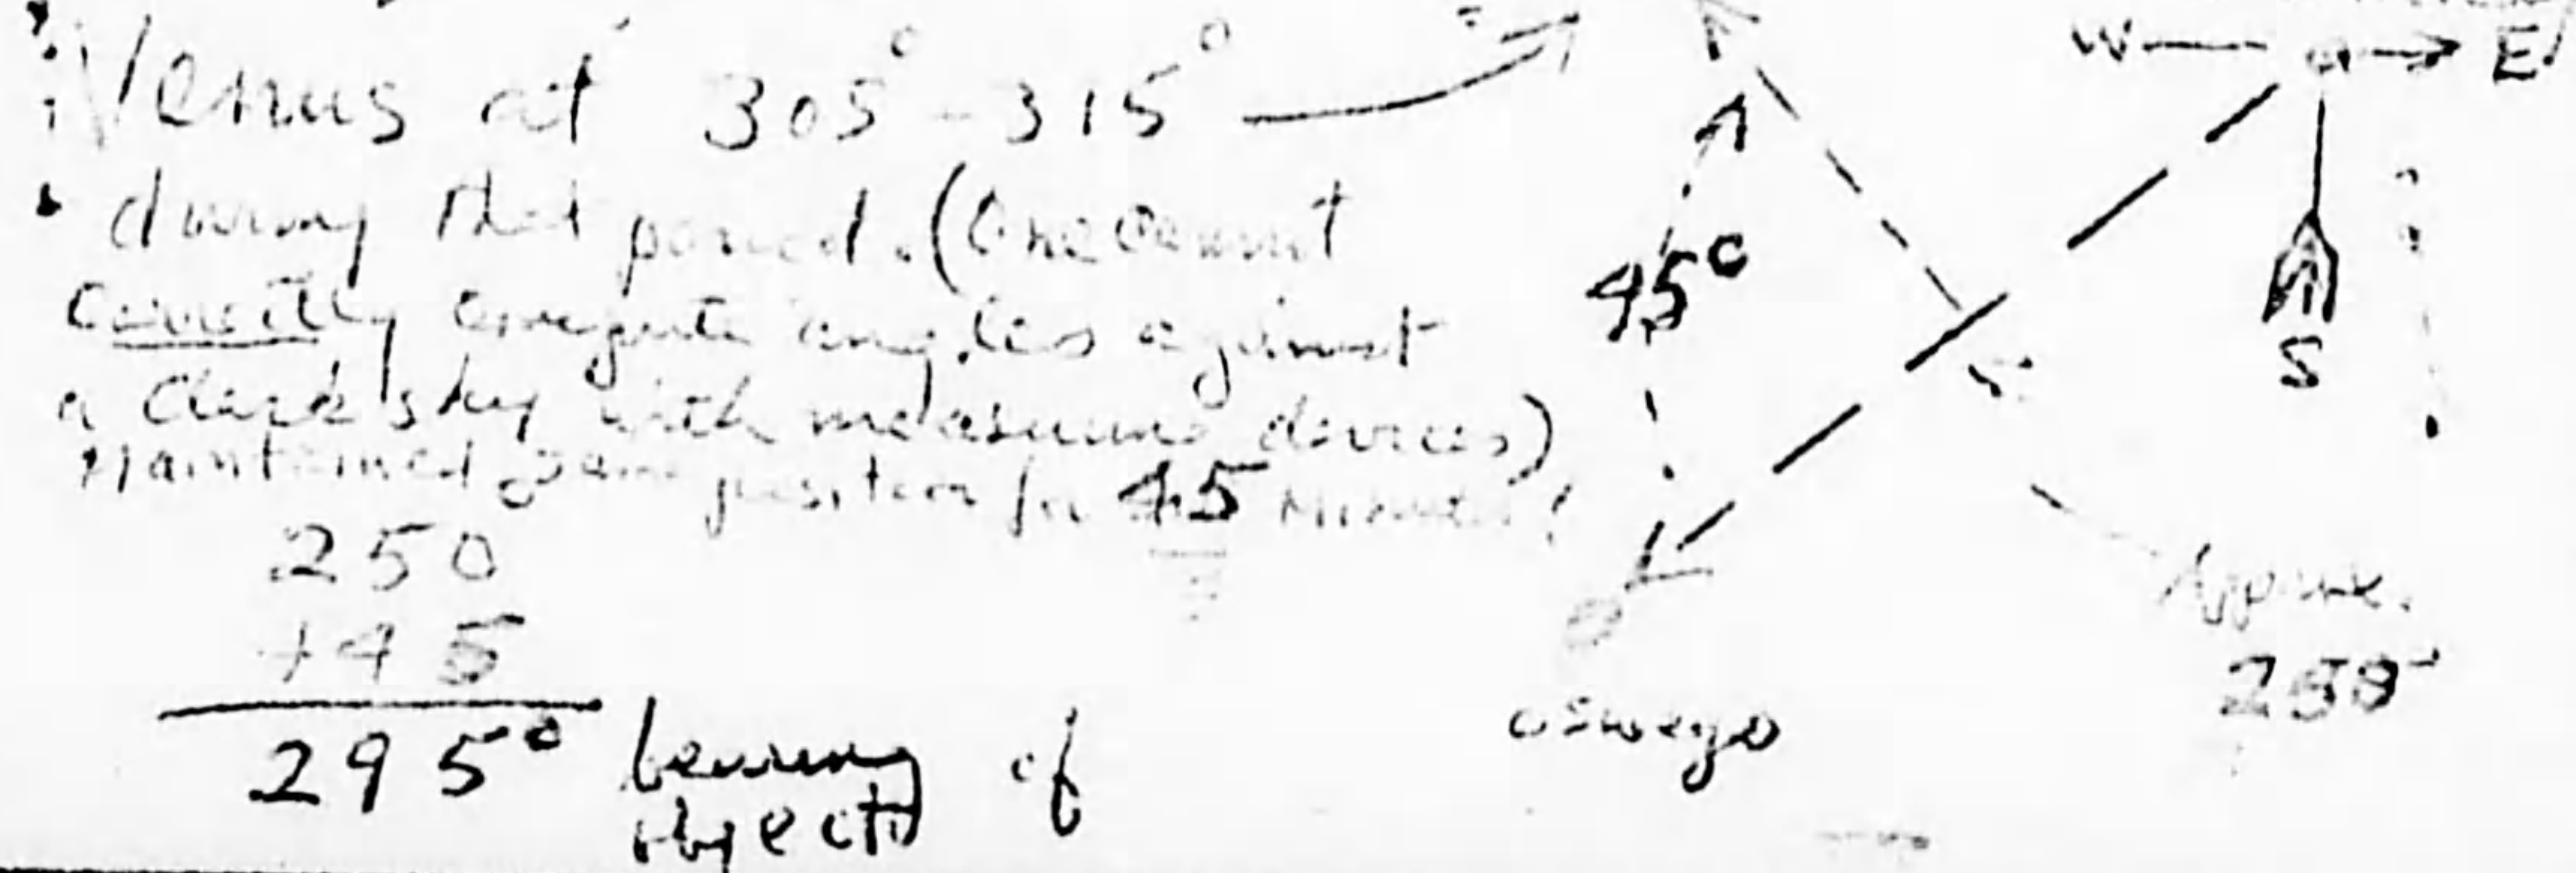 Venus at 305° - 315°
during that period. (One cannot
correctly compute angles against
a dark sky with measuring devices)
Maintained same position for 45 minutes!
250
+45
295° bearing of
object
45°
oswego
W E
S
Approx.
250°